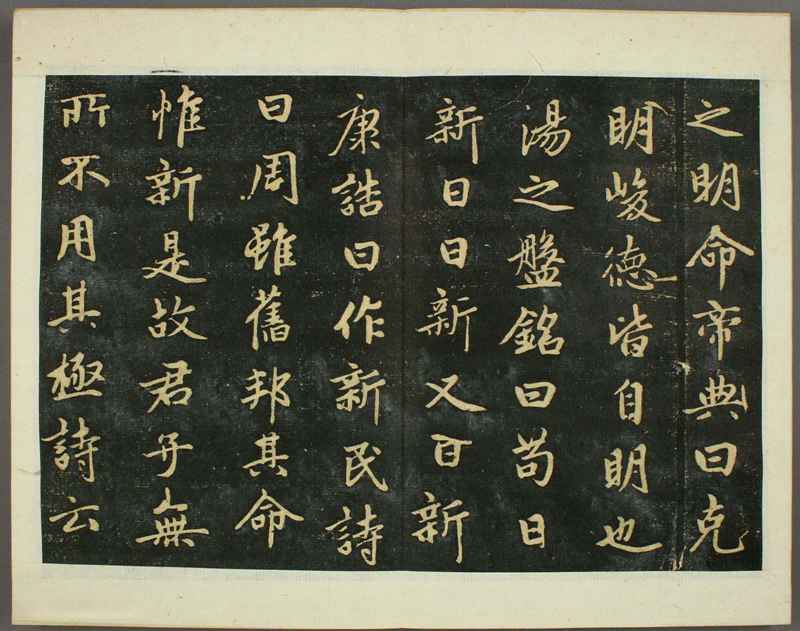 之明命帝典曰克
明峻德皆自明也
湯之盤銘曰苟日
新日日新又日新
康誥曰作新民詩
曰周雖舊邦其命
惟新是故君子無
所不用其極詩云